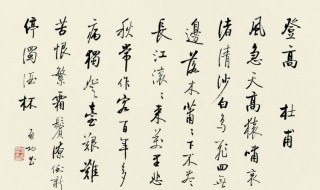 登高 杜甫
風急天高猿嘯哀
渚清沙白鳥飛回無
邊落木蕭〻下不盡
長江滚〻来萬里悲
秋常作客百年多
病獨登臺艱難
苦恨繁霜鬢潦倒新
停濁酒杯 啓功書